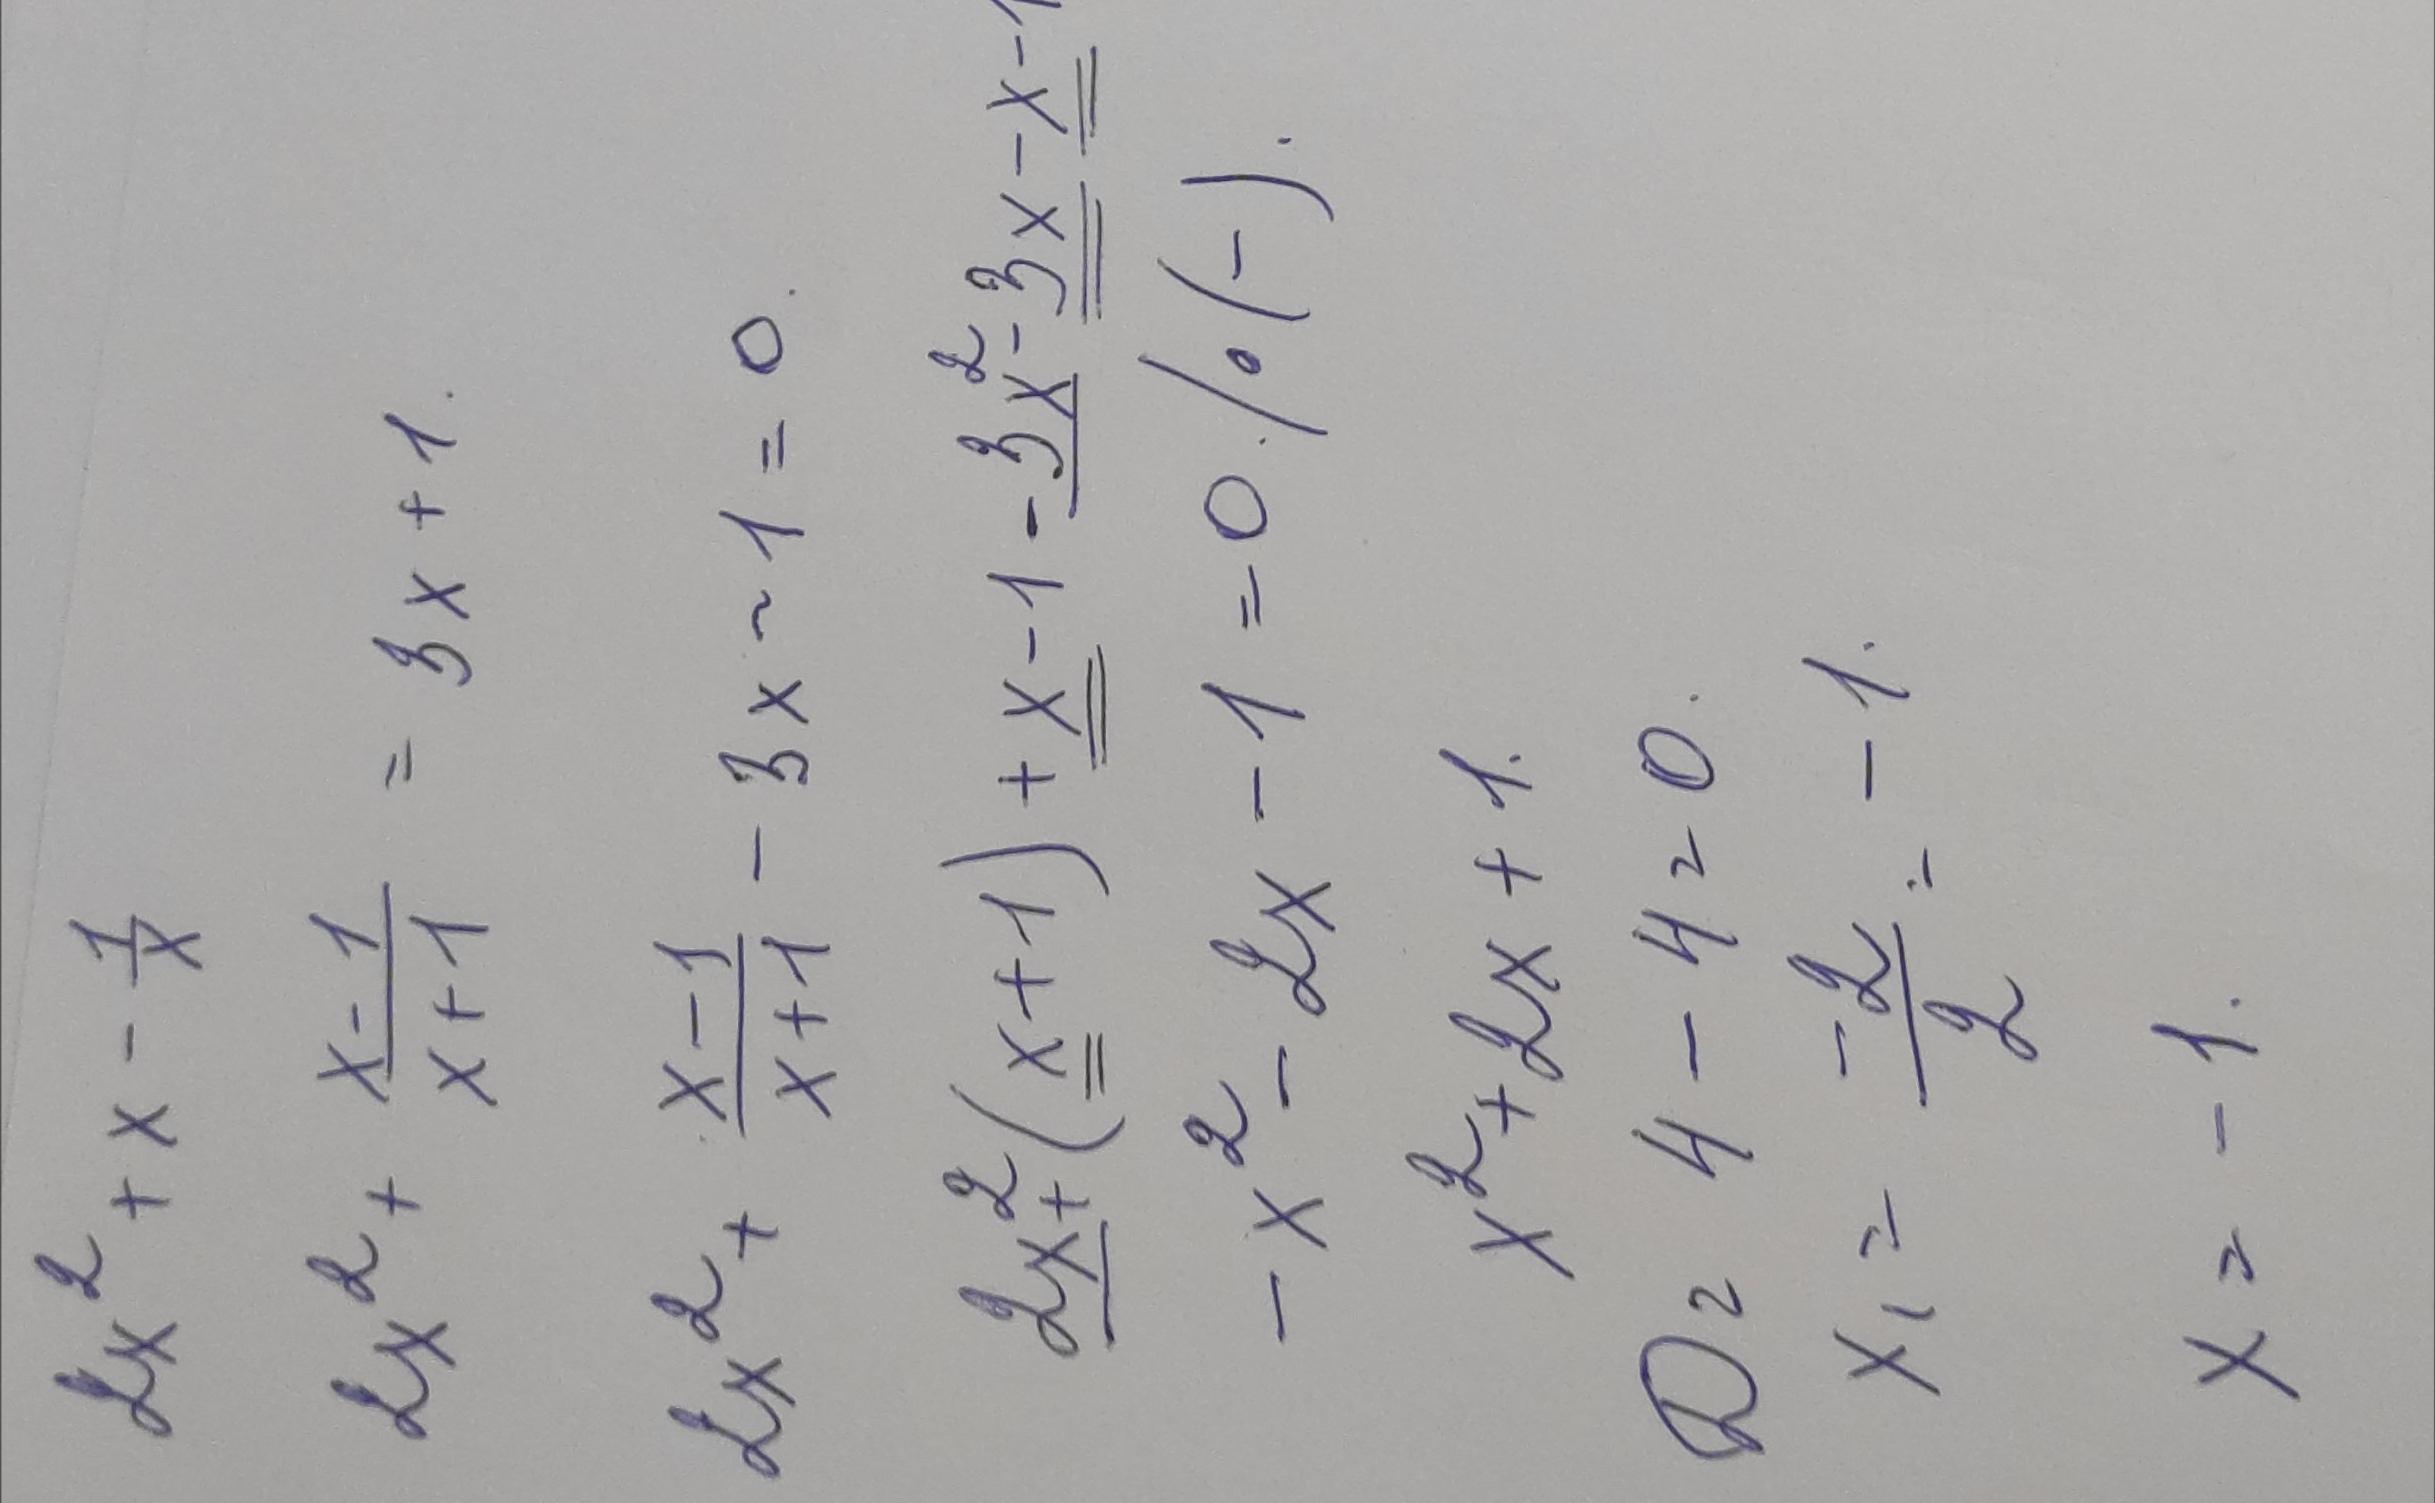 2x² + x - 1/x
2x² + (x-1)/(x+1) = 3x + 1.
2x² + (x-1)/(x+1) - 3x - 1 = 0.
2x²+(x+1) + x - 1 - 3x² - 3x - x - 1
-x² - 2x - 1 = 0. / · (-).
x² + 2x + 1.
D = 4 - 4 = 0.
x₁ = -2/2 = -1.
x = -1.